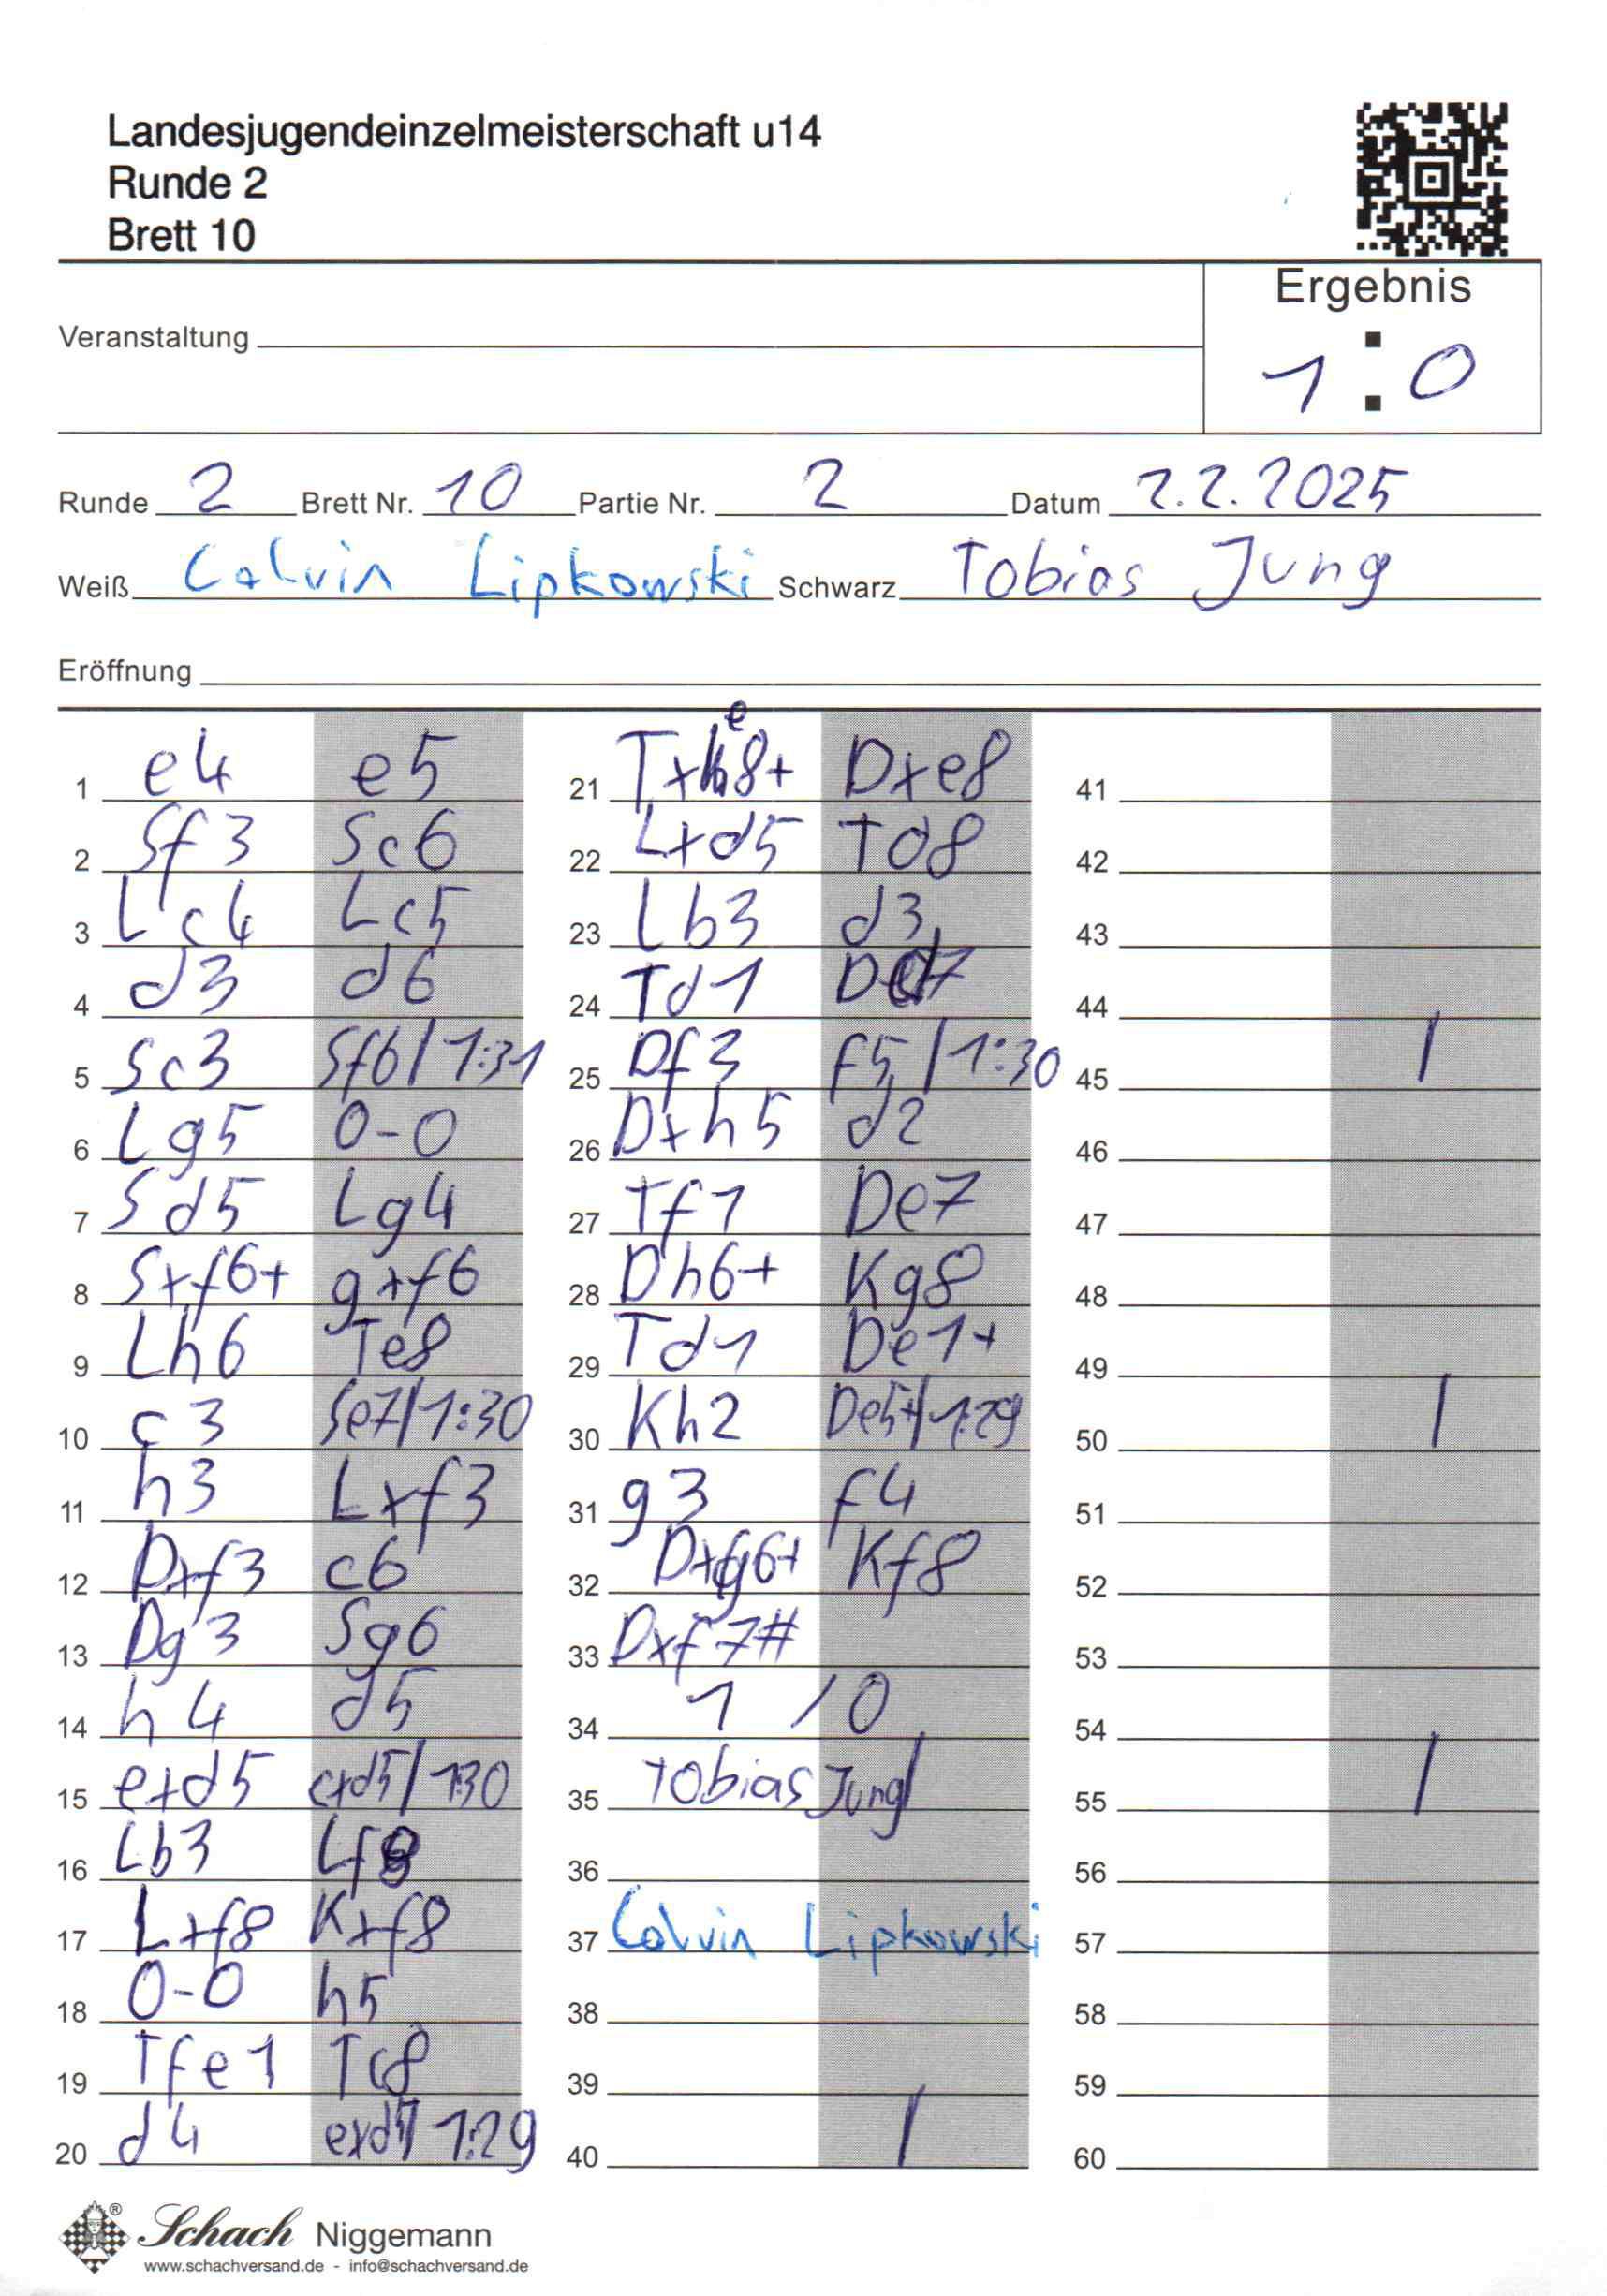 Landesjugendeinzelmeisterschaft u14
Runde 2
Brett 10
Ergebnis
1 : 0
Veranstaltung
Runde 2 Brett Nr. 10 Partie Nr. 2 Datum 2.2.2025
Weiß Calvin Lipkowski Schwarz Tobias Jung
Eröffnung
1 e4 e5
2 Sf3 Sc6
3 Lc4 Lc5
4 d3 d6
5 Sc3 Sf6 / 1:31
6 Lg5 0-0
7 Sd5 Lg4
8 Sxf6+ gxf6
9 Lh6 Te8
10 c3 Se7 / 1:30
11 h3 Lxf3
12 Dxf3 c6
13 Dg3 Sg6
14 h4 d5
15 exd5 cxd5 / 130
16 Lb3 Lf8
17 Lxf8 Kxf8
18 0-0 h5
19 Tfe1 Tc8
20 d4 exd4 / 1:29
21 Txe8+ Dxe8
22 Lxd5 Td8
23 Lb3 d3
24 Td1 Dd7
25 Df3 f5 / 1:30
26 Dxh5 d2
27 Tf1 De7
28 Dh6+ Kg8
29 Td1 De1+
30 Kh2 De5+ / 1:29
31 g3 f4
32 Dxg6+ Kf8
33 Dxf7#
34 1 / 0
35 Tobias Jung
36
37 Calvin Lipkowski
38
39
40
41
42
43
44
45
46
47
48
49
50
51
52
53
54
55
56
57
58
59
60
Schach Niggemann
www.schachversand.de - info@schachversand.de